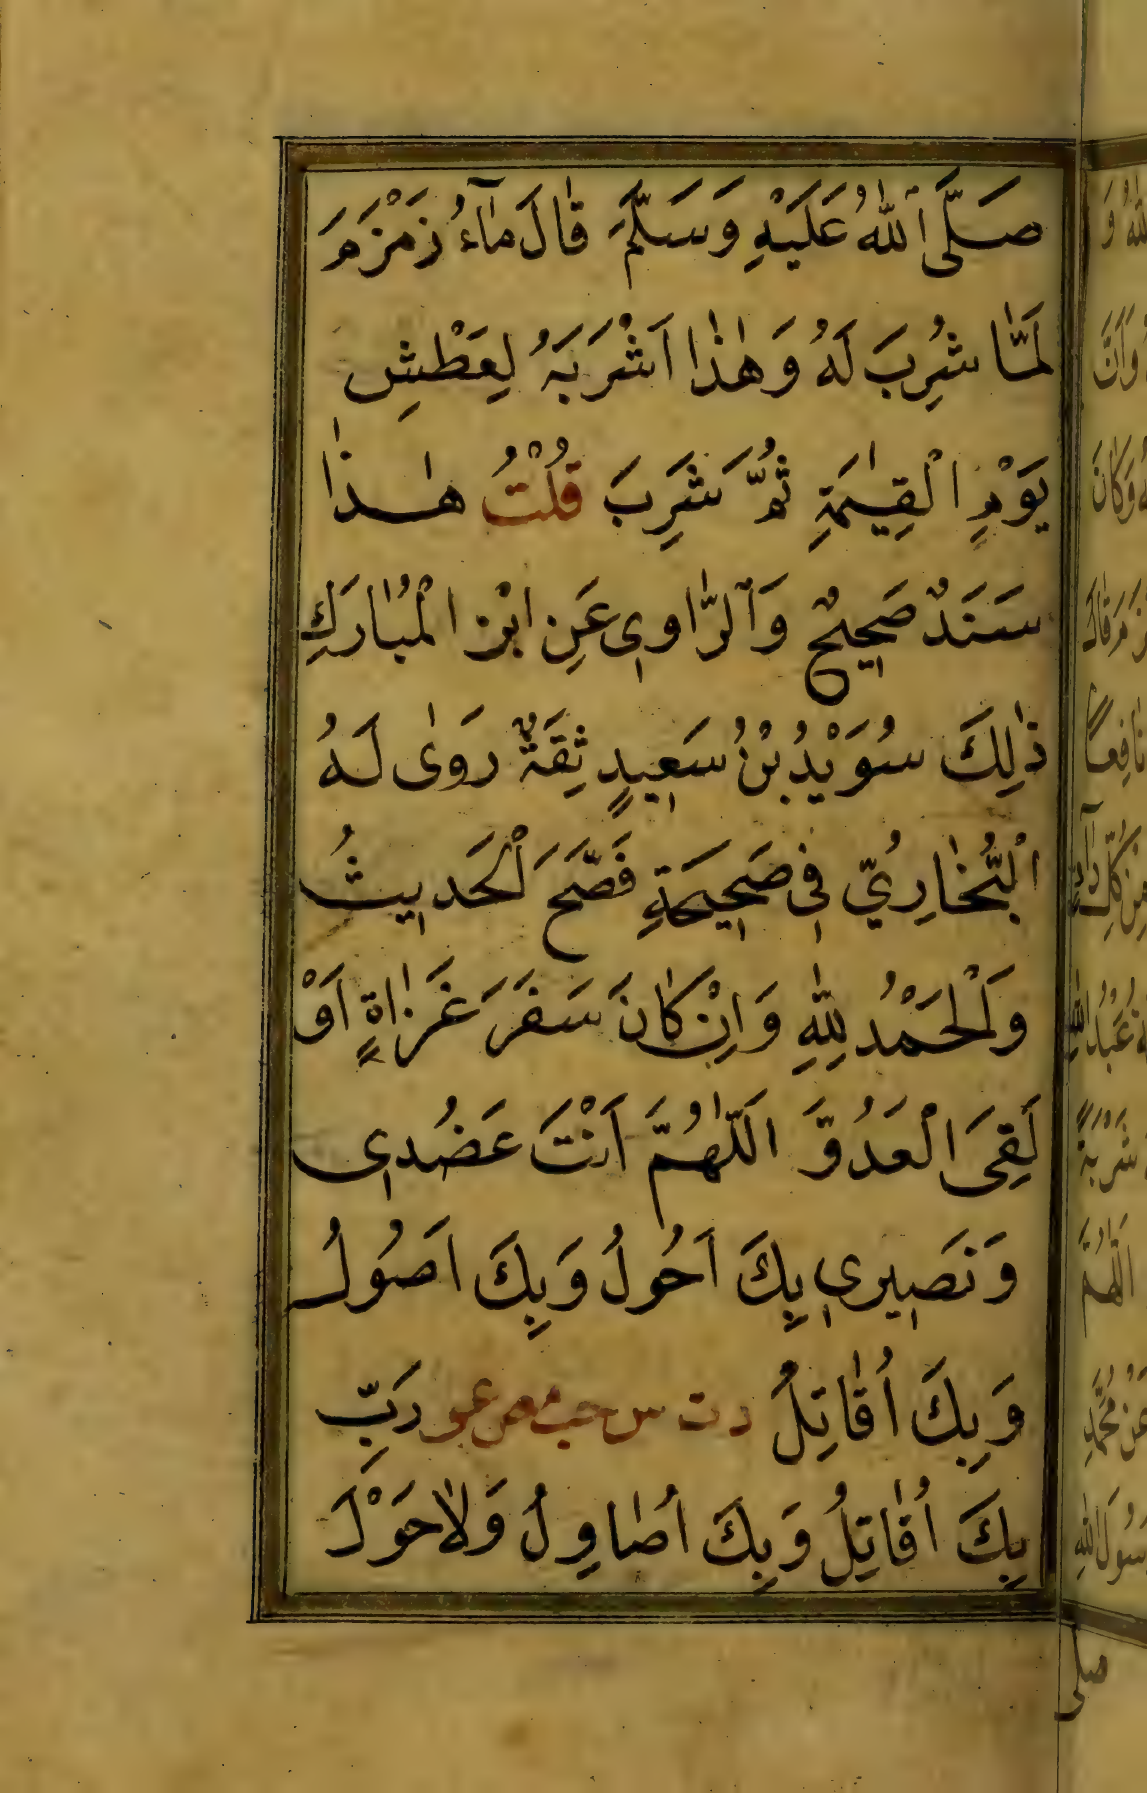 صَلَّى ٱللّٰهُ عَلَيْهِ وَسَلَّمَ قٰالَ مٰآءُ زَمْزَمَ
لَمّٰا شُرِبَ لَهُ وَهٰذٰا اَشْرَبَهُ لِعَطْشِ
يَوْمِ الْقِيٰمَةِ ثُمَّ شَرِبَ قُلْتُ هٰذٰا
سَنَدٌ صَحِيحٌ وَٱلرّٰاوِى عَنِ ابْنِ الْمُبٰارَكِ
ذٰلِكَ سُوَيْدُ بْنُ سَعِيدٍ ثِقَةٌ رَوٰى لَهُ
الْبُخٰارِيُّ فِى صَحِيحَةِ فَصَّحَ لْحَدِيثُ
وَلْحَمْدُ لِلّٰهِ وَاِنْ كٰانَ سَفَرَ غَزٰاةٍ اَوْ
لَقِىَ الْعَدُوَّ اَللّٰهُمَّ اَنْتَ عَضُدِى
وَنَصِيرِى بِكَ اَحُولُ وَبِكَ اَصُولُ
وَبِكَ اُقٰاتِلُ د ت س حب مص عو رَبِّ
بِكَ اُقٰاتِلُ وَبِكَ اُصٰاوِلُ وَلٰا حَوْلَ
صلى